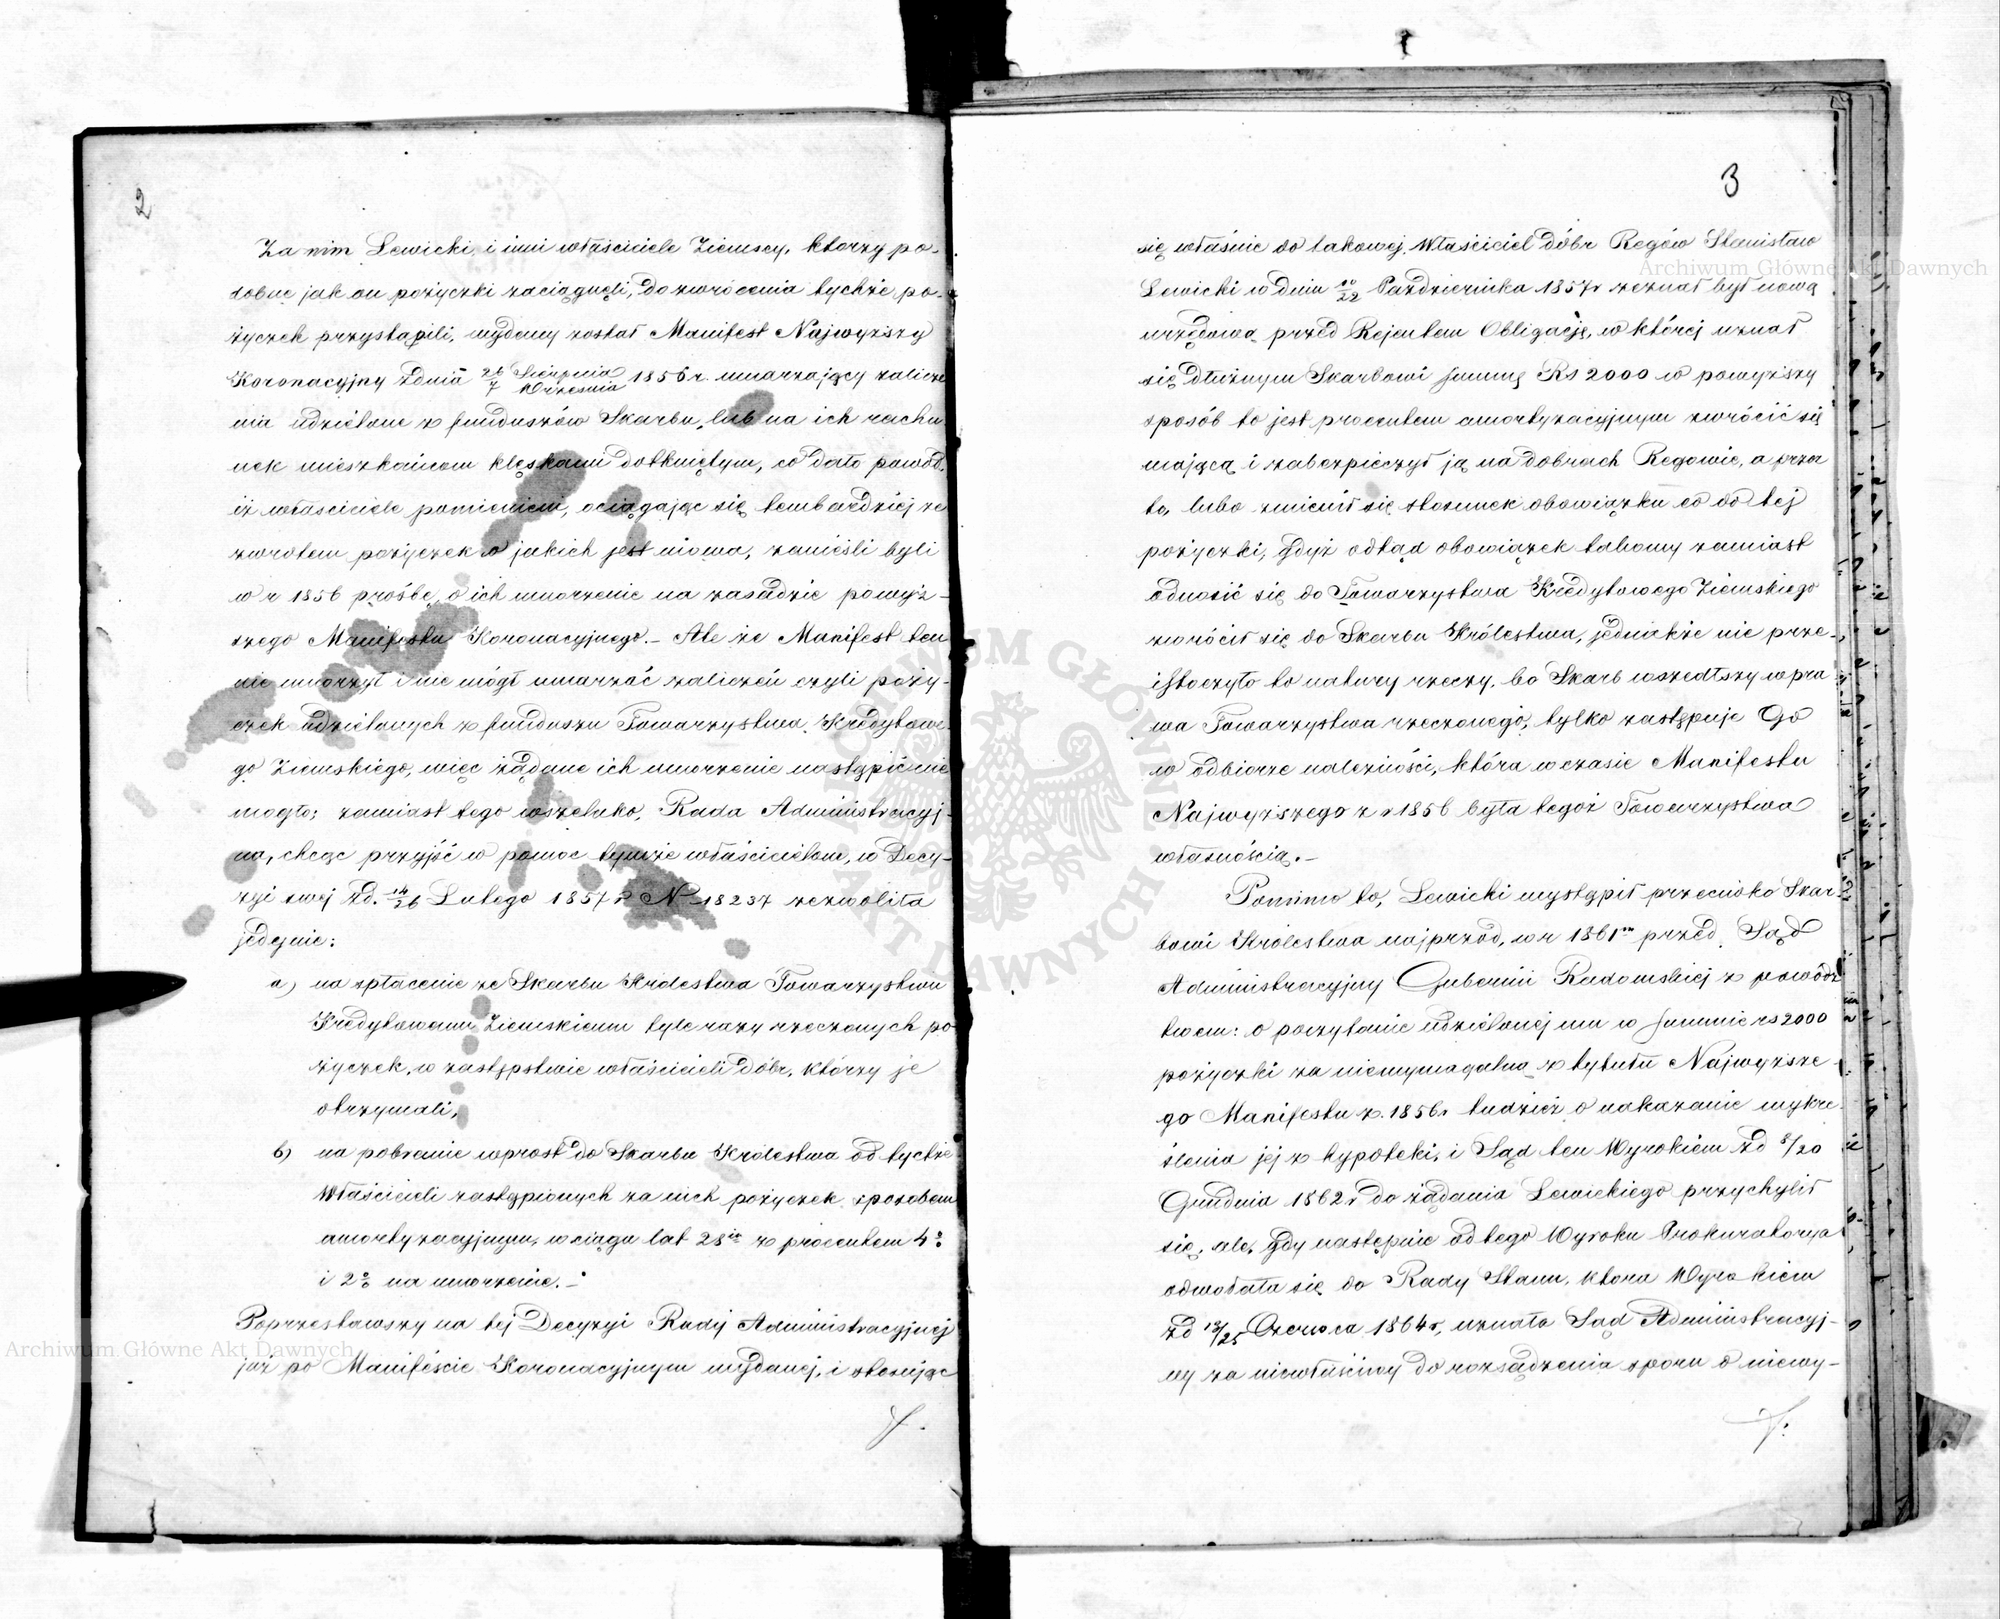 2
Za nim Lewicki, i inni właściciele Ziemscy, którzy po-
dobne jak on pożyczki zaciągnęli, do zwrócenia tychże po-
życzek przystąpili, wydany został Manifest Najwyższy
Koronacyjny z dnia 26/7 Sierpnia/Września 1856 r. umarzający zalicze
nia udzielone z funduszów Skarbu, lub na ich rachu
nek mieszkańcom klęskami dotkniętym, co dało powód,
iż właściciele pomienieni, ociągając się tembardziej ze
zwrotem pożyczek o jakich jest mowa, zanieśli byli
w r 1856 prośbę, o ich umorzenie na zasadzie powyż-
szego Manifestu Koronacyjnego. – Ale że Manifest ten
nie umorzył i nie mógł umarzać zaliczeń czyli poży-
czek udzielonych z funduszu Towarzystwa Kredytowe
go Ziemskiego, więc żądane ich umorzenie nastąpić nie
mogło; zamiast tego wszelako, Rada Administracyj-
na, chcąc przyjść w pomoc tymże właścicielom, w Decy-
zyi swej z d. 14/26 Lutego 1857 r N 18237 zezwoliła
jedynie:
a) na spłacenie ze Skarbu Królestwa Towarzystwu
Kredytowemu Ziemskiemu tyle razy rzeczonych po
życzek, w zastępstwie właścicieli dóbr, którzy je
otrzymali,
b) na pobranie wprost do Skarbu Królestwa od tychże
Właścicieli zastąpionych za nich pożyczek sposobem
amortyzacyjnym, w ciągu lat 28 z procentem 4%
i 2% na umorzenie. –
Poprzestawszy na tej Decyzyi Rady Administracyjnej
już po Manifeście Koronacyjnym wydanej, i stosując
3
się właśnie do takowej, Właściciel dóbr Regów Stanisław
Lewicki w dniu 10/22 Października 1857 r zeznał był nową
urzędową przed Rejentem Obligację, w której uznał
się dłużnym Skarbowi summę Rs 2000 w powyższy
sposób to jest procentem amortyzacyjnym zwrócić się
mającą i zabezpieczył ją na dobrach Regowie, a przez
to, lubo zmienił się stosunek obowiązku co do tej
pożyczki, gdyż odtąd obowiązek takowy zamiast
odnosić się do Towarzystwa Kredytowego Ziemskiego
zwrócił się do Skarbu Królestwa, jednakże nie prze-
istoczyło to natury rzeczy, bo Skarb wszedłszy w pra
wa Towarzystwa rzeczonego, tylko zastępuje Go
w odbiorze należności, która w czasie Manifestu
Najwyższego z r 1856 była tegoż Towarzystwa
własnością. –
Pomimo to, Lewicki wystąpił przeciwko Skar-
bowi Królestwa najprzód, w r 1861 przed Sąd
Administracyjny Gubernii Radomskiej z powódz
twem: o poczytanie udzielonej mu w summie rs 2000
pożyczki za niewymagalną z tytułu Najwyższe
go Manifestu z 1856 r tudzież o nakazanie wykre
ślenia jej z hypoteki, i Sąd ten Wyrokiem z d 8/20
Grudnia 1862 r do żądania Lewickiego przychylił
się, ale gdy następnie od tego Wyroku Prokuratorya
odwołała się do Rady Stanu, która Wyrokiem
z d 13/25 Czerwca 1864 r, uznała Sąd Administracyj-
ny za niewłaściwy do rozsądzenia sporu o niewy-
Archiwum Główne Akt Dawnych
Archiwum Główne Akt Dawnych
ARCHIWUM GŁÓWNE AKT DAWNYCH